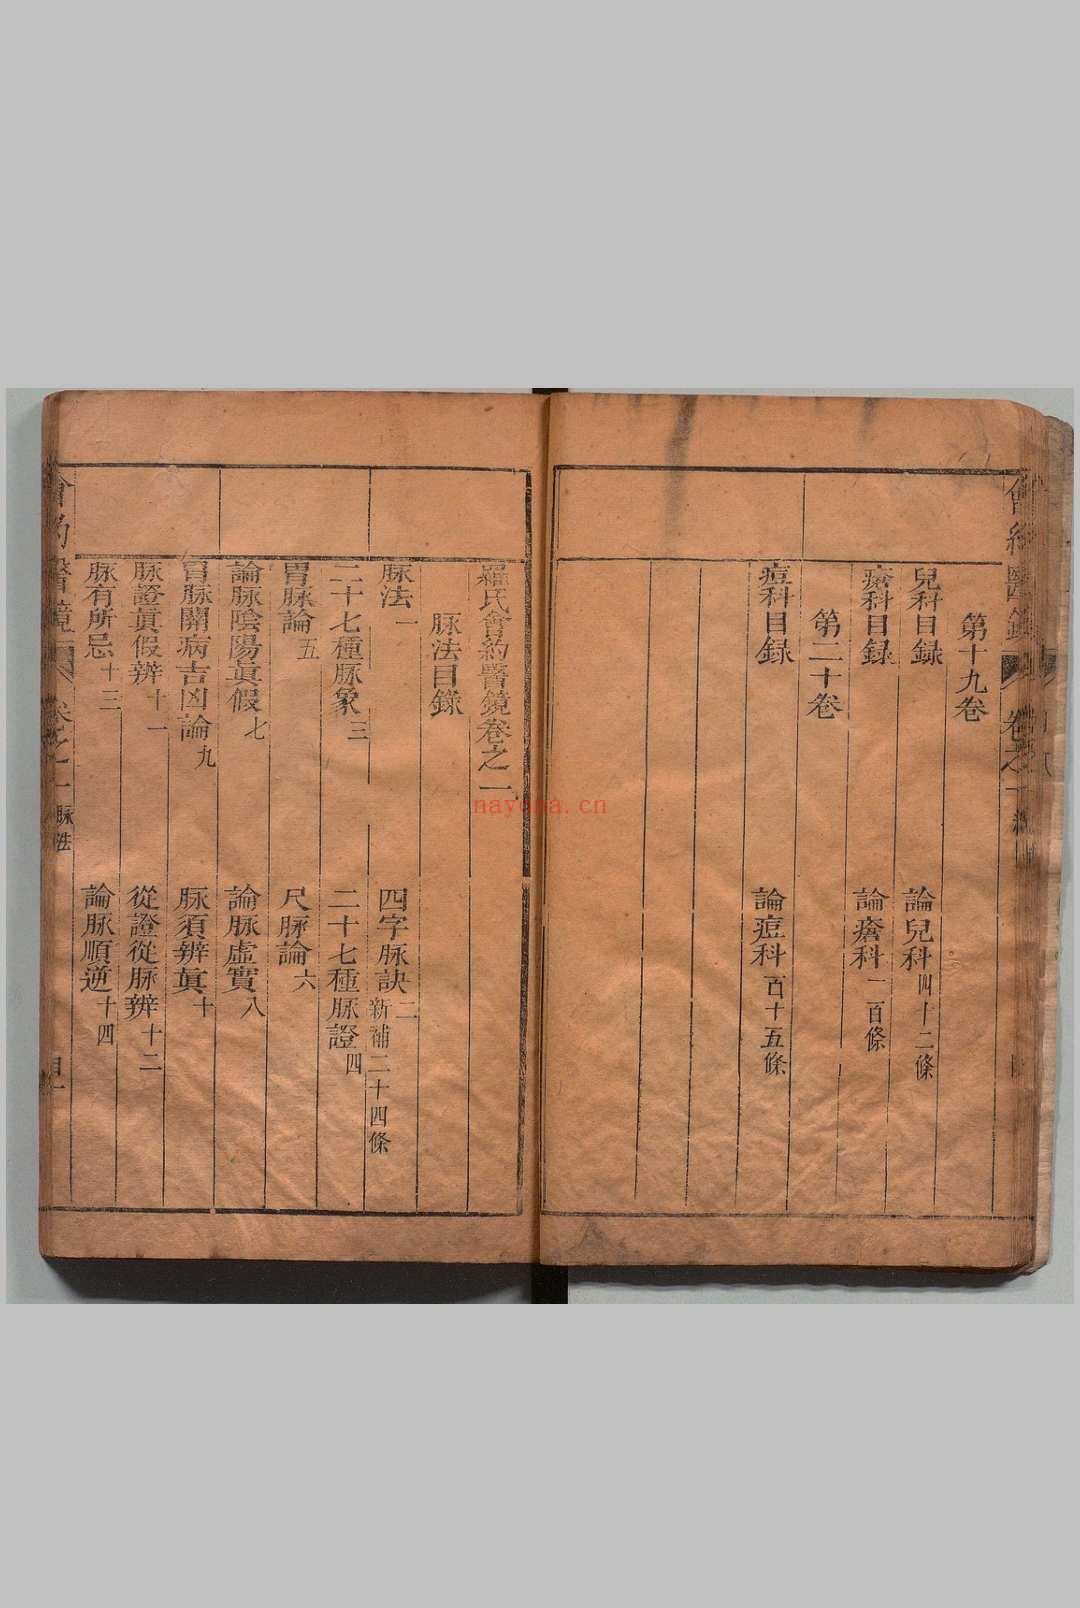 第十九卷
兒科目録 論兒科四十二條
瘡科目録 論瘡科一百條
第二十卷
痘科目録 論痘科百十五條
羅氏會約醫鏡卷之一
脉法目錄
脉法一 四字脉訣二新補二十四條
二十七種脉象三 二十七種脉證四
胃脉論五 尺脉論六
論脉陰陽真假七 論脉虛實八
胃脉關病吉凶論九 脉須辨眞十
脉證眞假辨十一 從證從脉辨十二
脉有所忌十三 論脉順逆十四
會約醫鏡 卷之一 脉法
nayona.cn